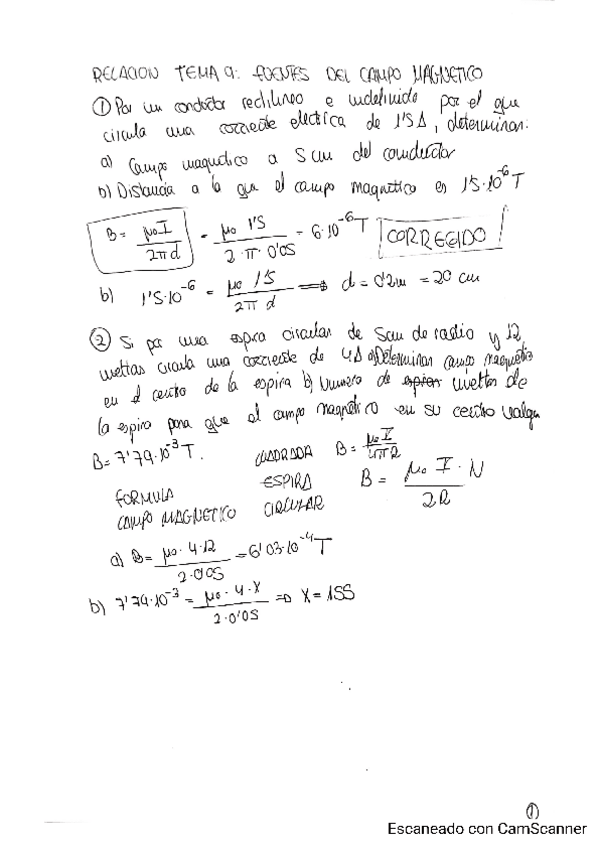 RELACION TEMA 9: FUENTES DEL CAMPO MAGNETICO
① Por un conductor rectilineo e indefinido por el que
circula una corriente electrica de 1'5A, determinar:
a) Campo magnetico a 5cm del conductor
b) Distancia a la que el campo magnetico es 1'5·10⁻⁶ T
B = μ₀I / 2πd = μ₀ 1'5 / 2·π·0'05 = 6·10⁻⁶ T CORREGIDO
b) 1'5·10⁻⁶ = μ₀ 1'5 / 2π d ⇒ d = 0'2m = 20 cm
② Si por una espira circular de 5cm de radio y 12
vueltas circula una corriente de 4A a) Determinar campo magnetico
en el centro de la espira b) Numero de vueltas de
la espira para que el campo magnetico en su centro valga
B = 7'79·10⁻³ T. CUADRADA B = μ₀ I / 4πR
FORMULA ESPIRA B = μ₀ I · N / 2R
CAMPO MAGNETICO CIRCULAR
a) B = μ₀·4·12 / 2·0'05 = 6'03·10⁻⁴ T
b) 7'79·10⁻³ = μ₀·4·X / 2·0'05 ⇒ X = 155
①
Escaneado con CamScanner